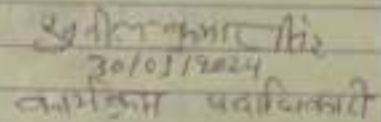 सुनील कुमार सिंह
30/01/2024
कार्यक्रम पदाधिकारी